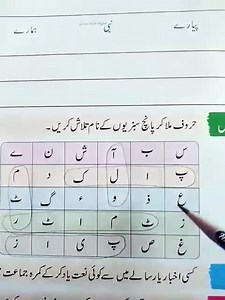 پیارے نبی ہمارے
حروف ملا کر پانچ سبزیوں کے نام تلاش کریں۔
س ب آ ش ن ے
پ ا ل ک د م
ع ذ و ء گ ٹ
ز ٹ م ا ٹ ر
غ ص پ ی ا ز
کسی اخبار یا رسالے میں سے کوئی نعت یاد کر کے کمرہ جماعت